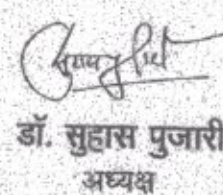 डॉ. सुहास पुजारी
अध्यक्ष